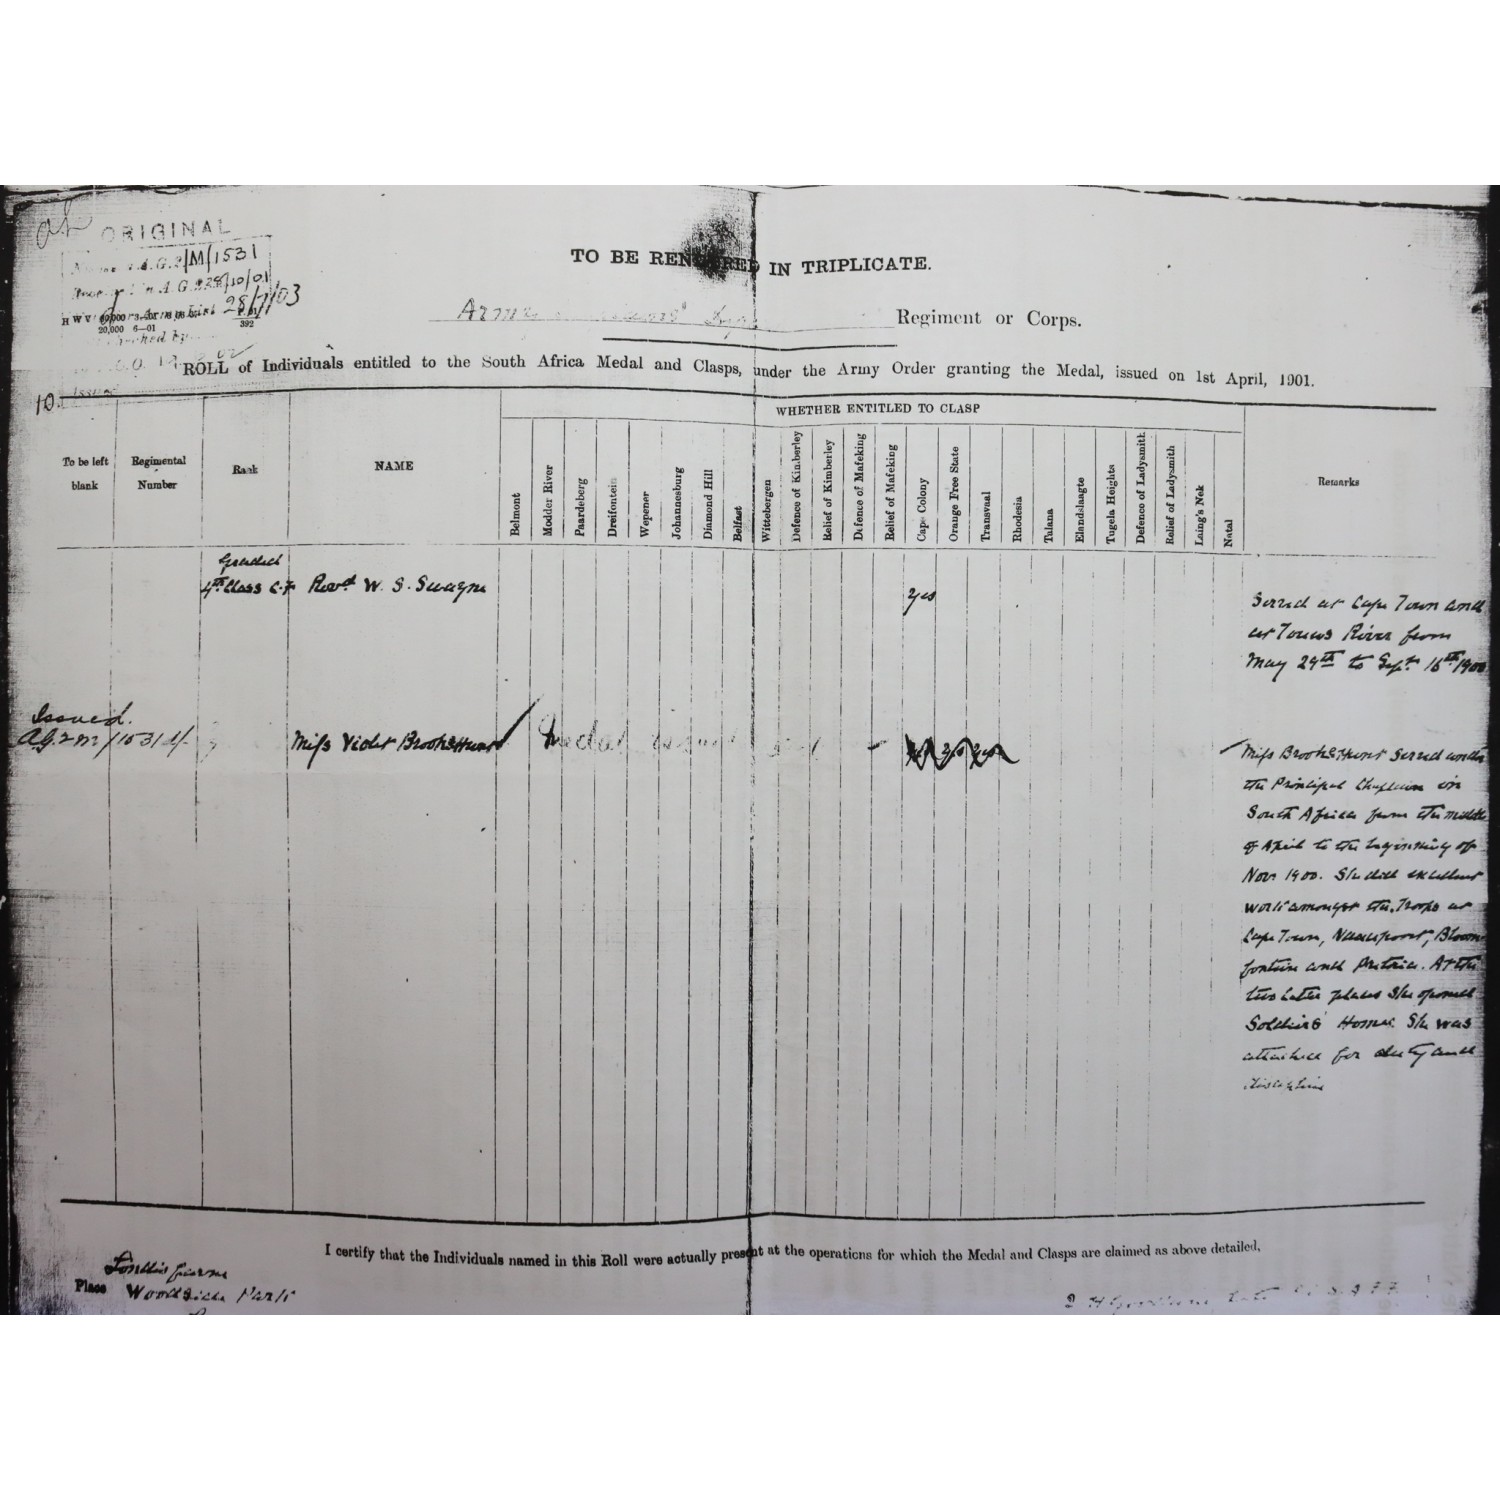 ORIGINAL
A.G.2/M/1531
A.G.2 28/10/01
28/7/03
H W V
20,000 6—01
392
TO BE RENDERED IN TRIPLICATE.
Army Regiment or Corps.
ROLL of Individuals entitled to the South Africa Medal and Clasps, under the Army Order granting the Medal, issued on 1st April, 1901.
10.
WHETHER ENTITLED TO CLASP
To be left blank
Regimental Number
Rank
NAME
Belmont
Modder River
Paardeberg
Dreifontein
Wepener
Johannesburg
Diamond Hill
Belfast
Wittebergen
Defence of Kimberley
Relief of Kimberley
Defence of Mafeking
Relief of Mafeking
Cape Colony
Orange Free State
Transvaal
Rhodesia
Talana
Elandslaagte
Tugela Heights
Defence of Ladysmith
Relief of Ladysmith
Laing's Nek
Natal
Remarks
Graded
4th Class C.F. Revd W. S. Swayne yes
Served at Cape Town and
at Touws River from
May 29th to Sept. 16th 1900
Issued.
A.G.2 M/1531 Miss Violet Brooke-Hunt Medal issued yes yes yes
Miss Brooke-Hunt served under
the Principal Chaplain in
South Africa from the middle
of April to the beginning of
Nov. 1900. She did excellent
work amongst the Troops at
Cape Town, Naauwpoort, Bloem
fontein and Pretoria. At the
two later places she opened
Soldiers' Homes. She was
attached for duty and
discipline
I certify that the Individuals named in this Roll were actually present at the operations for which the Medal and Clasps are claimed as above detailed,
Place Woodside Park